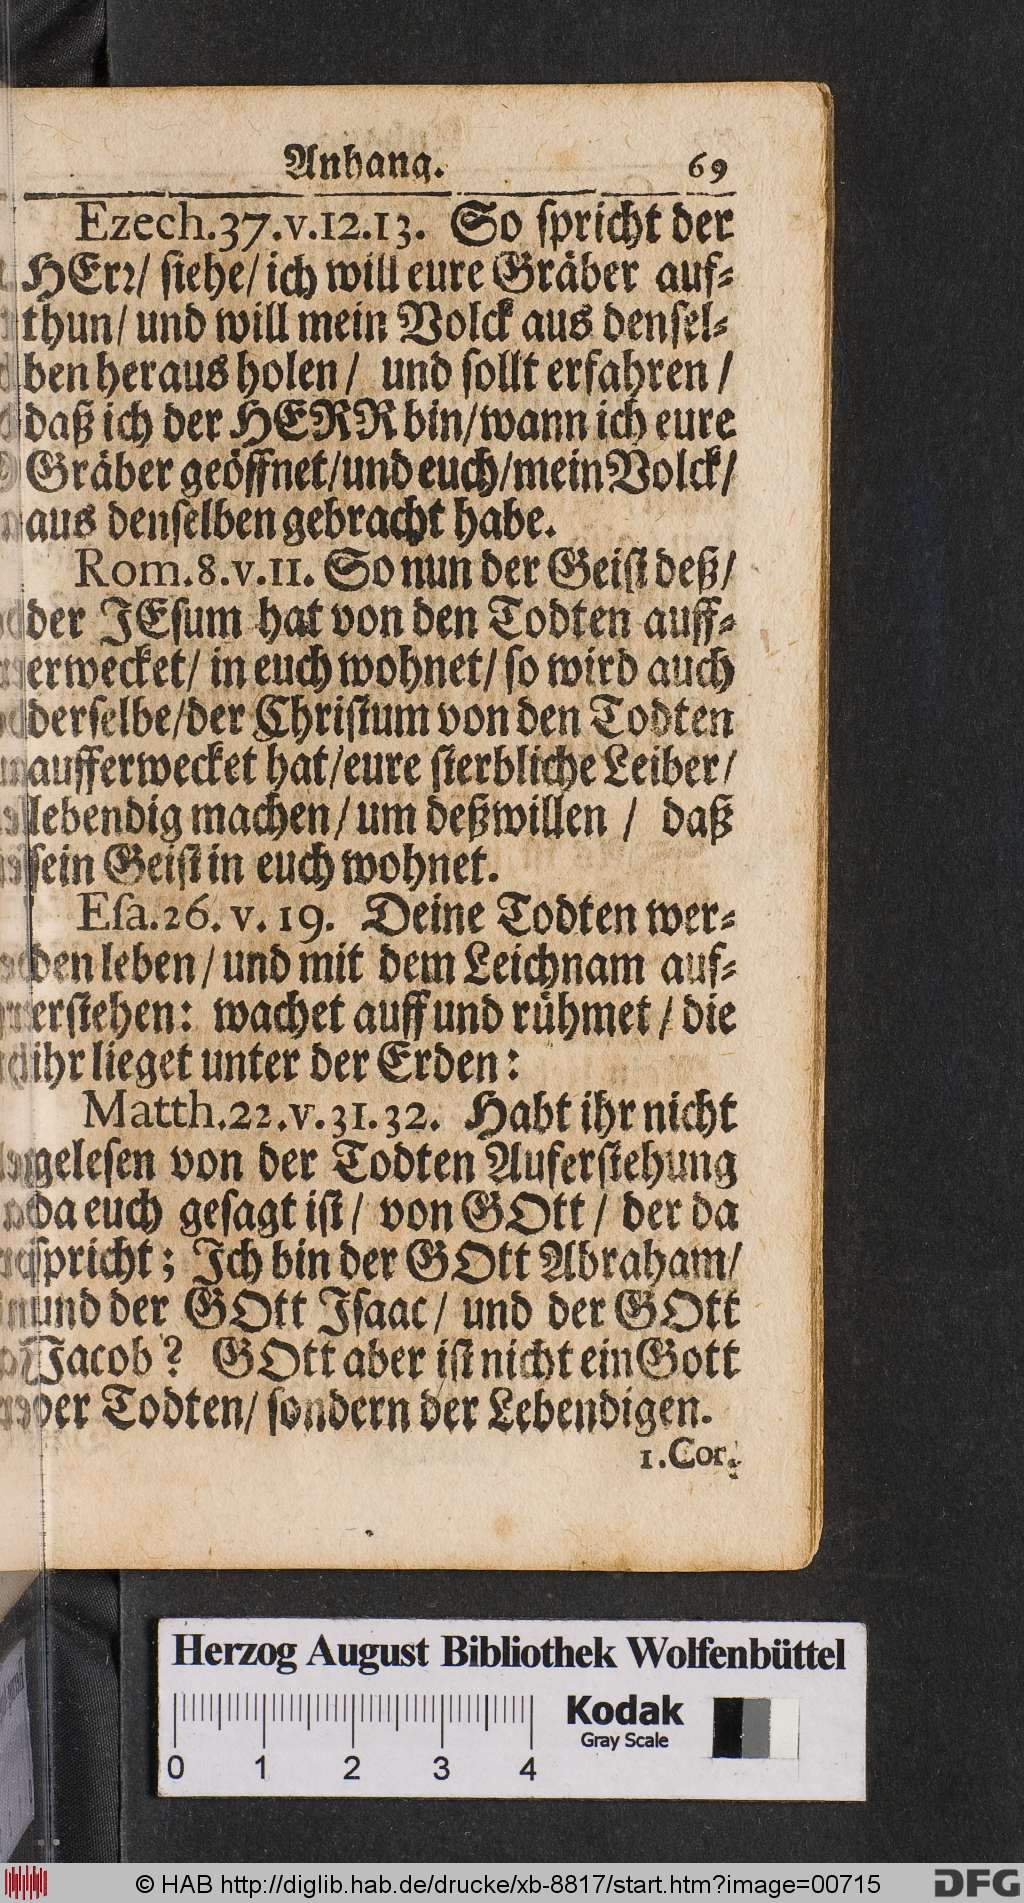 Anhang. 69
Ezech.37.v.12.13. So ſpricht der
HErꝛ/ ſiehe/ ich will eure Gräber auf⸗
thun/ und will mein Volck aus denſel⸗
ben heraus holen/ und ſollt erfahren/
daß ich der HERR bin/ wann ich eure
Gräber geöffnet/ und euch/ mein Volck/
aus denſelben gebracht habe.
Rom.8.v.11. So nun der Geiſt deß/
der JEſum hat von den Todten auff⸗
erwecket/ in euch wohnet/ ſo wird auch
derſelbe/ der Chriſtum von den Todten
aufferwecket hat/ eure ſterbliche Leiber/
lebendig machen/ um deßwillen/ daß
ſein Geiſt in euch wohnet.
Eſa.26. v. 19. Deine Todten wer⸗
den leben/ und mit dem Leichnam auf⸗
erſtehen: wachet auff und rühmet/ die
ihr lieget unter der Erden:
Matth.22.v.31.32. Habt ihr nicht
geleſen von der Todten Auferſtehung
da euch geſagt iſt/ von GOtt/ der da
ſpricht; Ich bin der GOtt Abraham/
und der GOtt Iſaac/ und der GOtt
Jacob? GOtt aber iſt nicht ein Gott
der Todten/ ſondern der Lebendigen.
1.Cor.
Herzog August Bibliothek Wolfenbüttel
Kodak
Gray Scale
0 1 2 3 4
© HAB http://diglib.hab.de/drucke/xb-8817/start.htm?image=00715
DFG